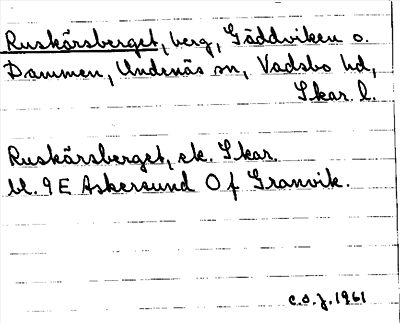 Ruskärsberget, berg, Gäddviken o.
Dammen, Undenäs sn, Vadsbo hd,
Skar. l.
Ruskärsberget, ek. Skar.
bl. 9 E Askersund O f Granvik.
C.O.J. 1961